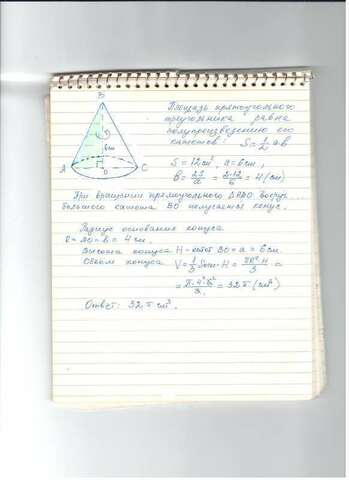 B
6см
A
O
C
Площадь прямоугольного
треугольника равна
полупроизведению его
катетов: S = 1/2 ab
S = 12см², a = 6см,
B = 2S/a = 2·12/6 = 4 (см)
При вращении прямоугольного ΔABO вокруг
большого катета BO получается конус.
Радиус основания конуса
R = AO = b = 4 см.
Высота конуса H - катет BO = a = 6см
Объем конуса V = 1/3 Sосн·H = πR²·H/3 =
= π·4²·6/3 = 32π (см³)
Ответ: 32π см³.